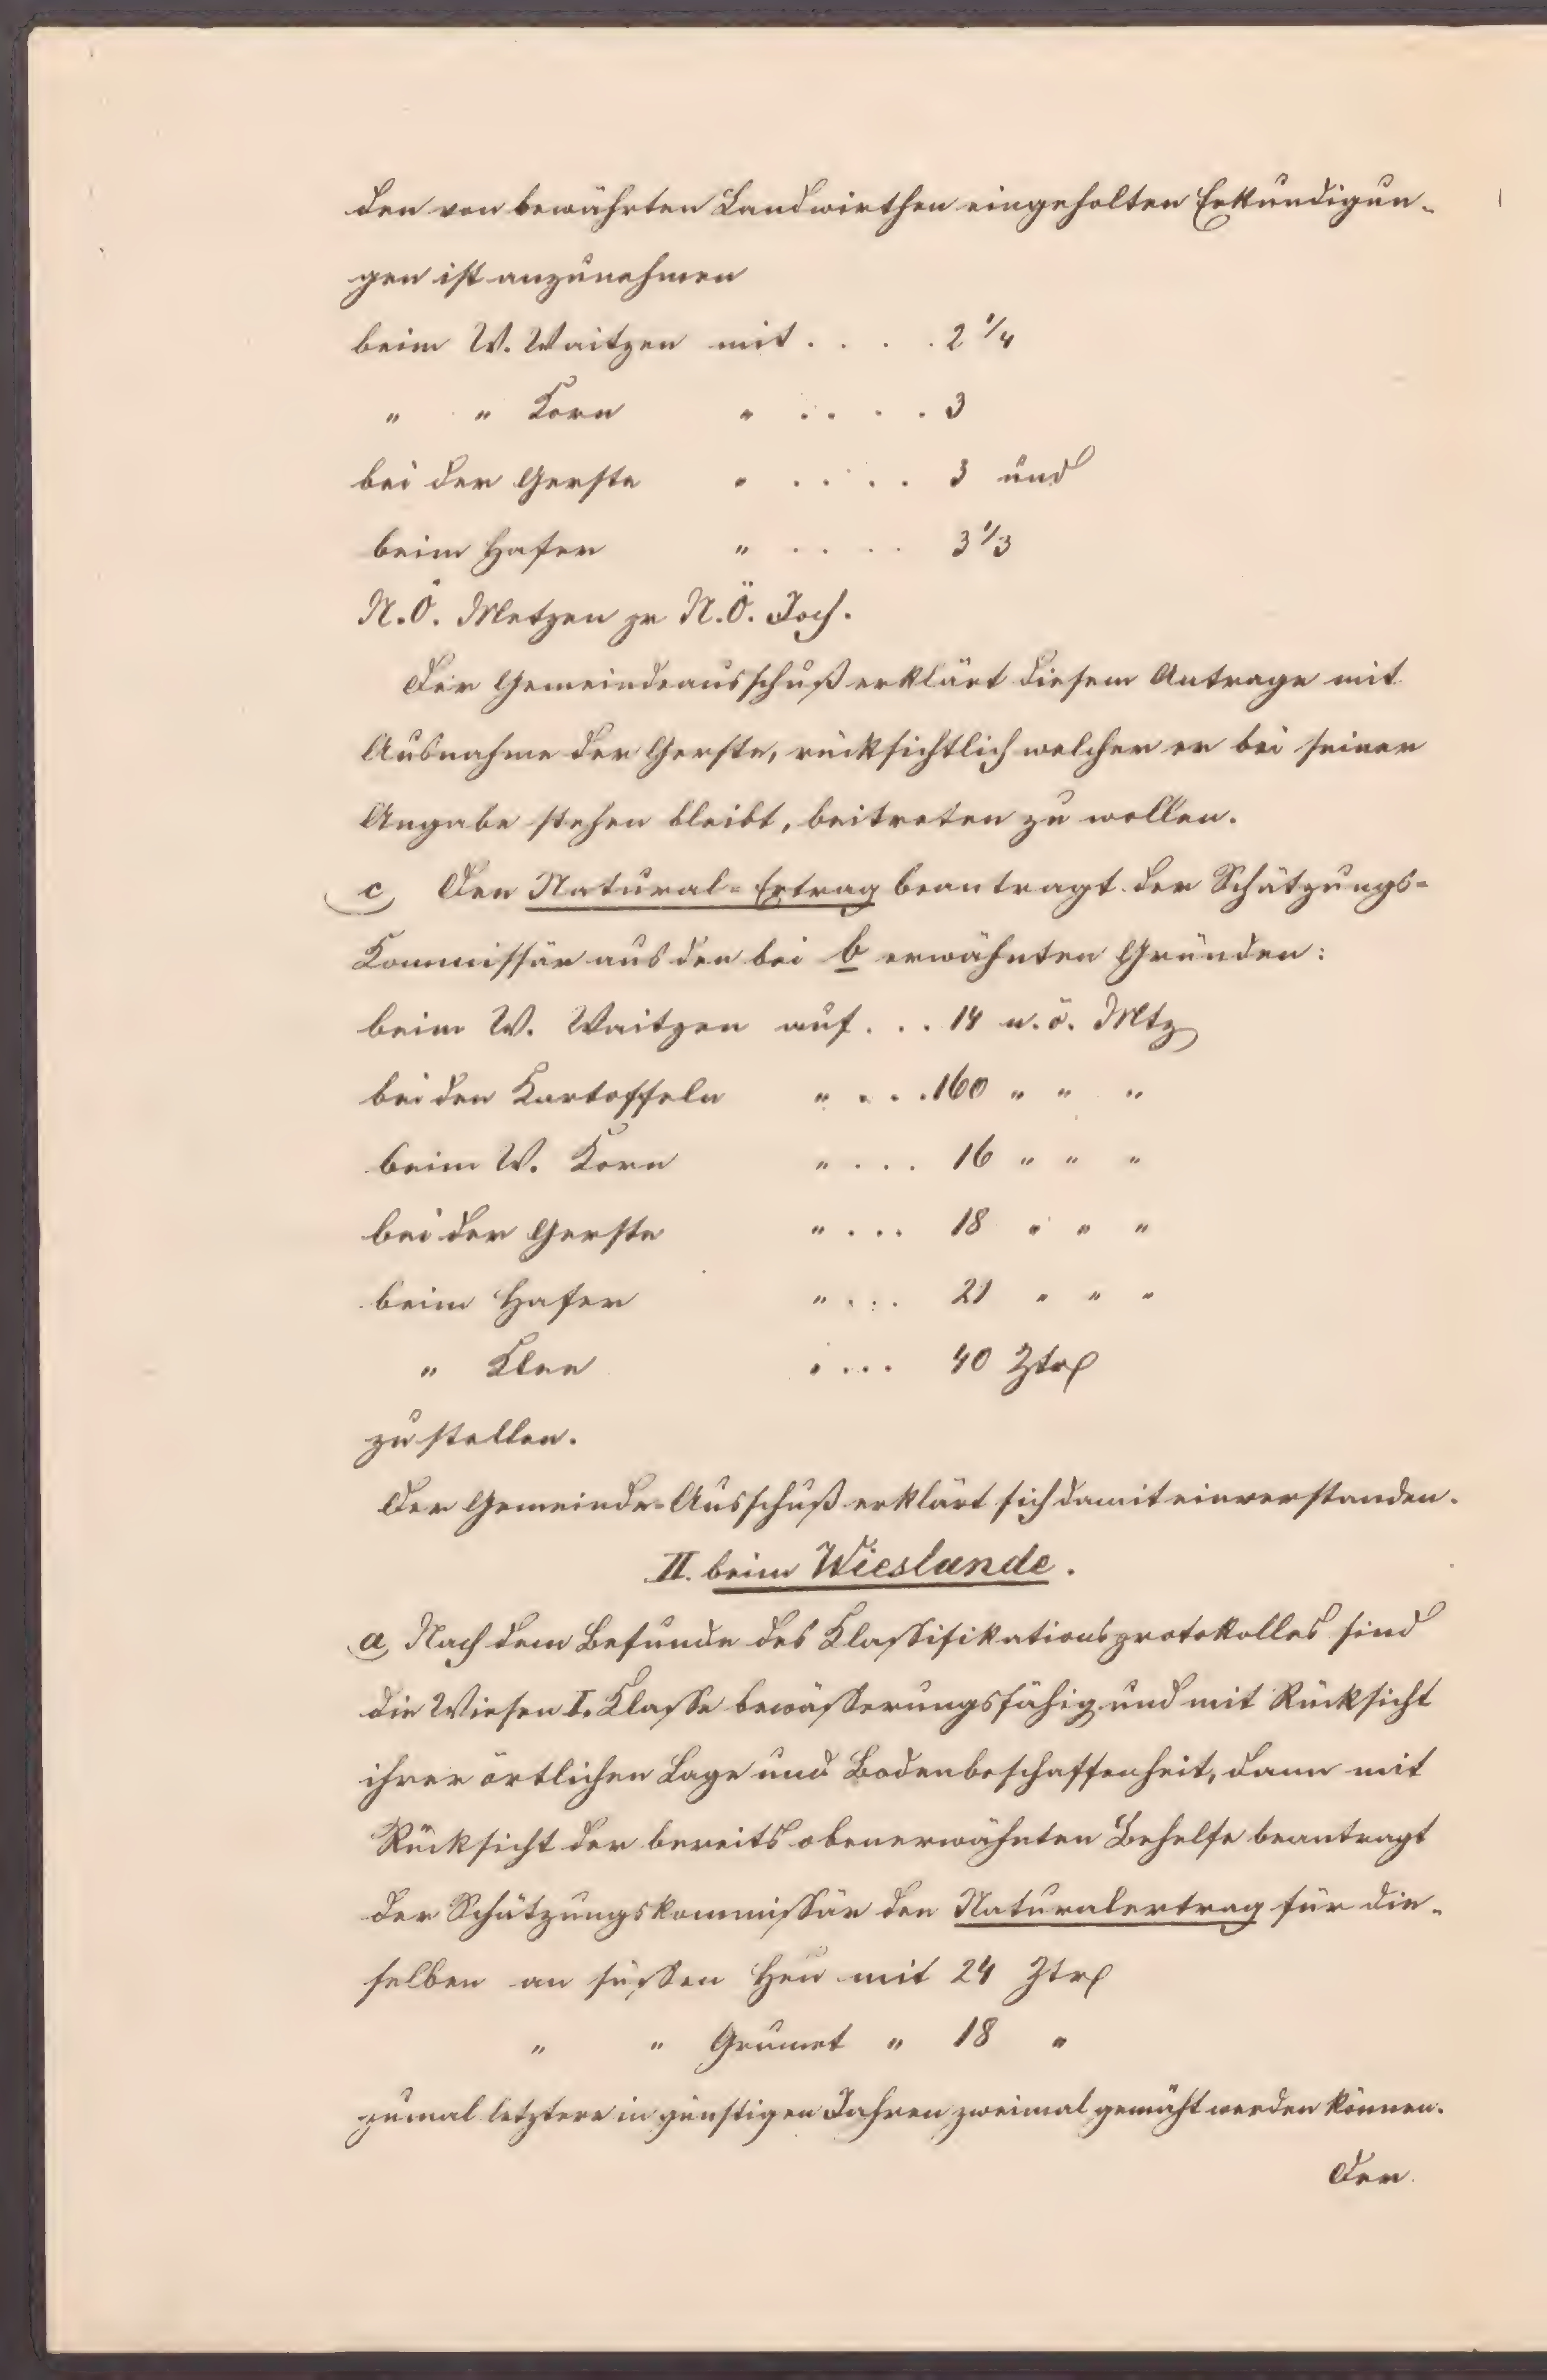 den von bewährten Landwirthen eingeholten Erkundigun-
gen ist anzunehmen
beim W. Waitzen mit . . . . 2 1/4
" " Korn " . . . . 3
bei der Gerste " . . . . 3 und
beim Hafer " . . . . 3 1/3
N.Ö. Metzen pr N.Ö. Joch.
Der Gemeindeausschuß erklärt diesem Antrage mit
Ausnahme der Gerste, rücksichtlich welcher er bei seiner
Angabe stehen bleibt, beitreten zu wollen.
c, Den Natural-Ertrag beantragt der Schätzungs-
Kommissär aus den bei b erwähnten Gründen:
beim W. Waitzen auf . . . 14 n.ö. Mtz
bei den Kartoffeln " . . . 160 " " "
beim W. Korn " . . . 16 " " "
bei der Gerste " . . . 18 " " "
beim Hafer " . . . 21 " " "
" Klee " . . . 40 Ztr
zu stellen.
Der Gemeinde-Ausschuß erklärt sich damit einverstanden.
II. beim Wieslande.
a, Nach dem Befunde des Klassifikationsprotokolles sind
die Wiesen I. Klasse bewässerungsfähig und mit Rücksicht
ihrer örtlichen Lage und Bodenbeschaffenheit, dann mit
Rücksicht der bereits obenerwähnten Behelfe beantragt
der Schätzungskommissär den Naturalertrag für die-
selben an süssen Heu mit 24 Ztr
" " Grumet " 18 "
zumal letztere in günstigen Jahren zweimal gemäht werden können.
Der